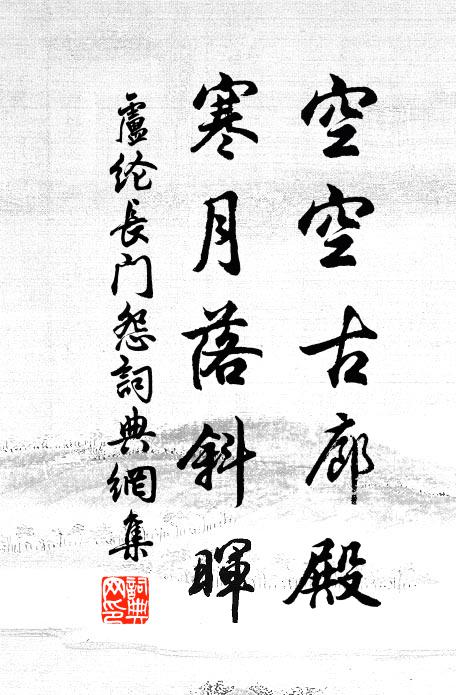 空空古廊殿
寒月落斜暉
盧纶長门怨詞典網集
詞典网印